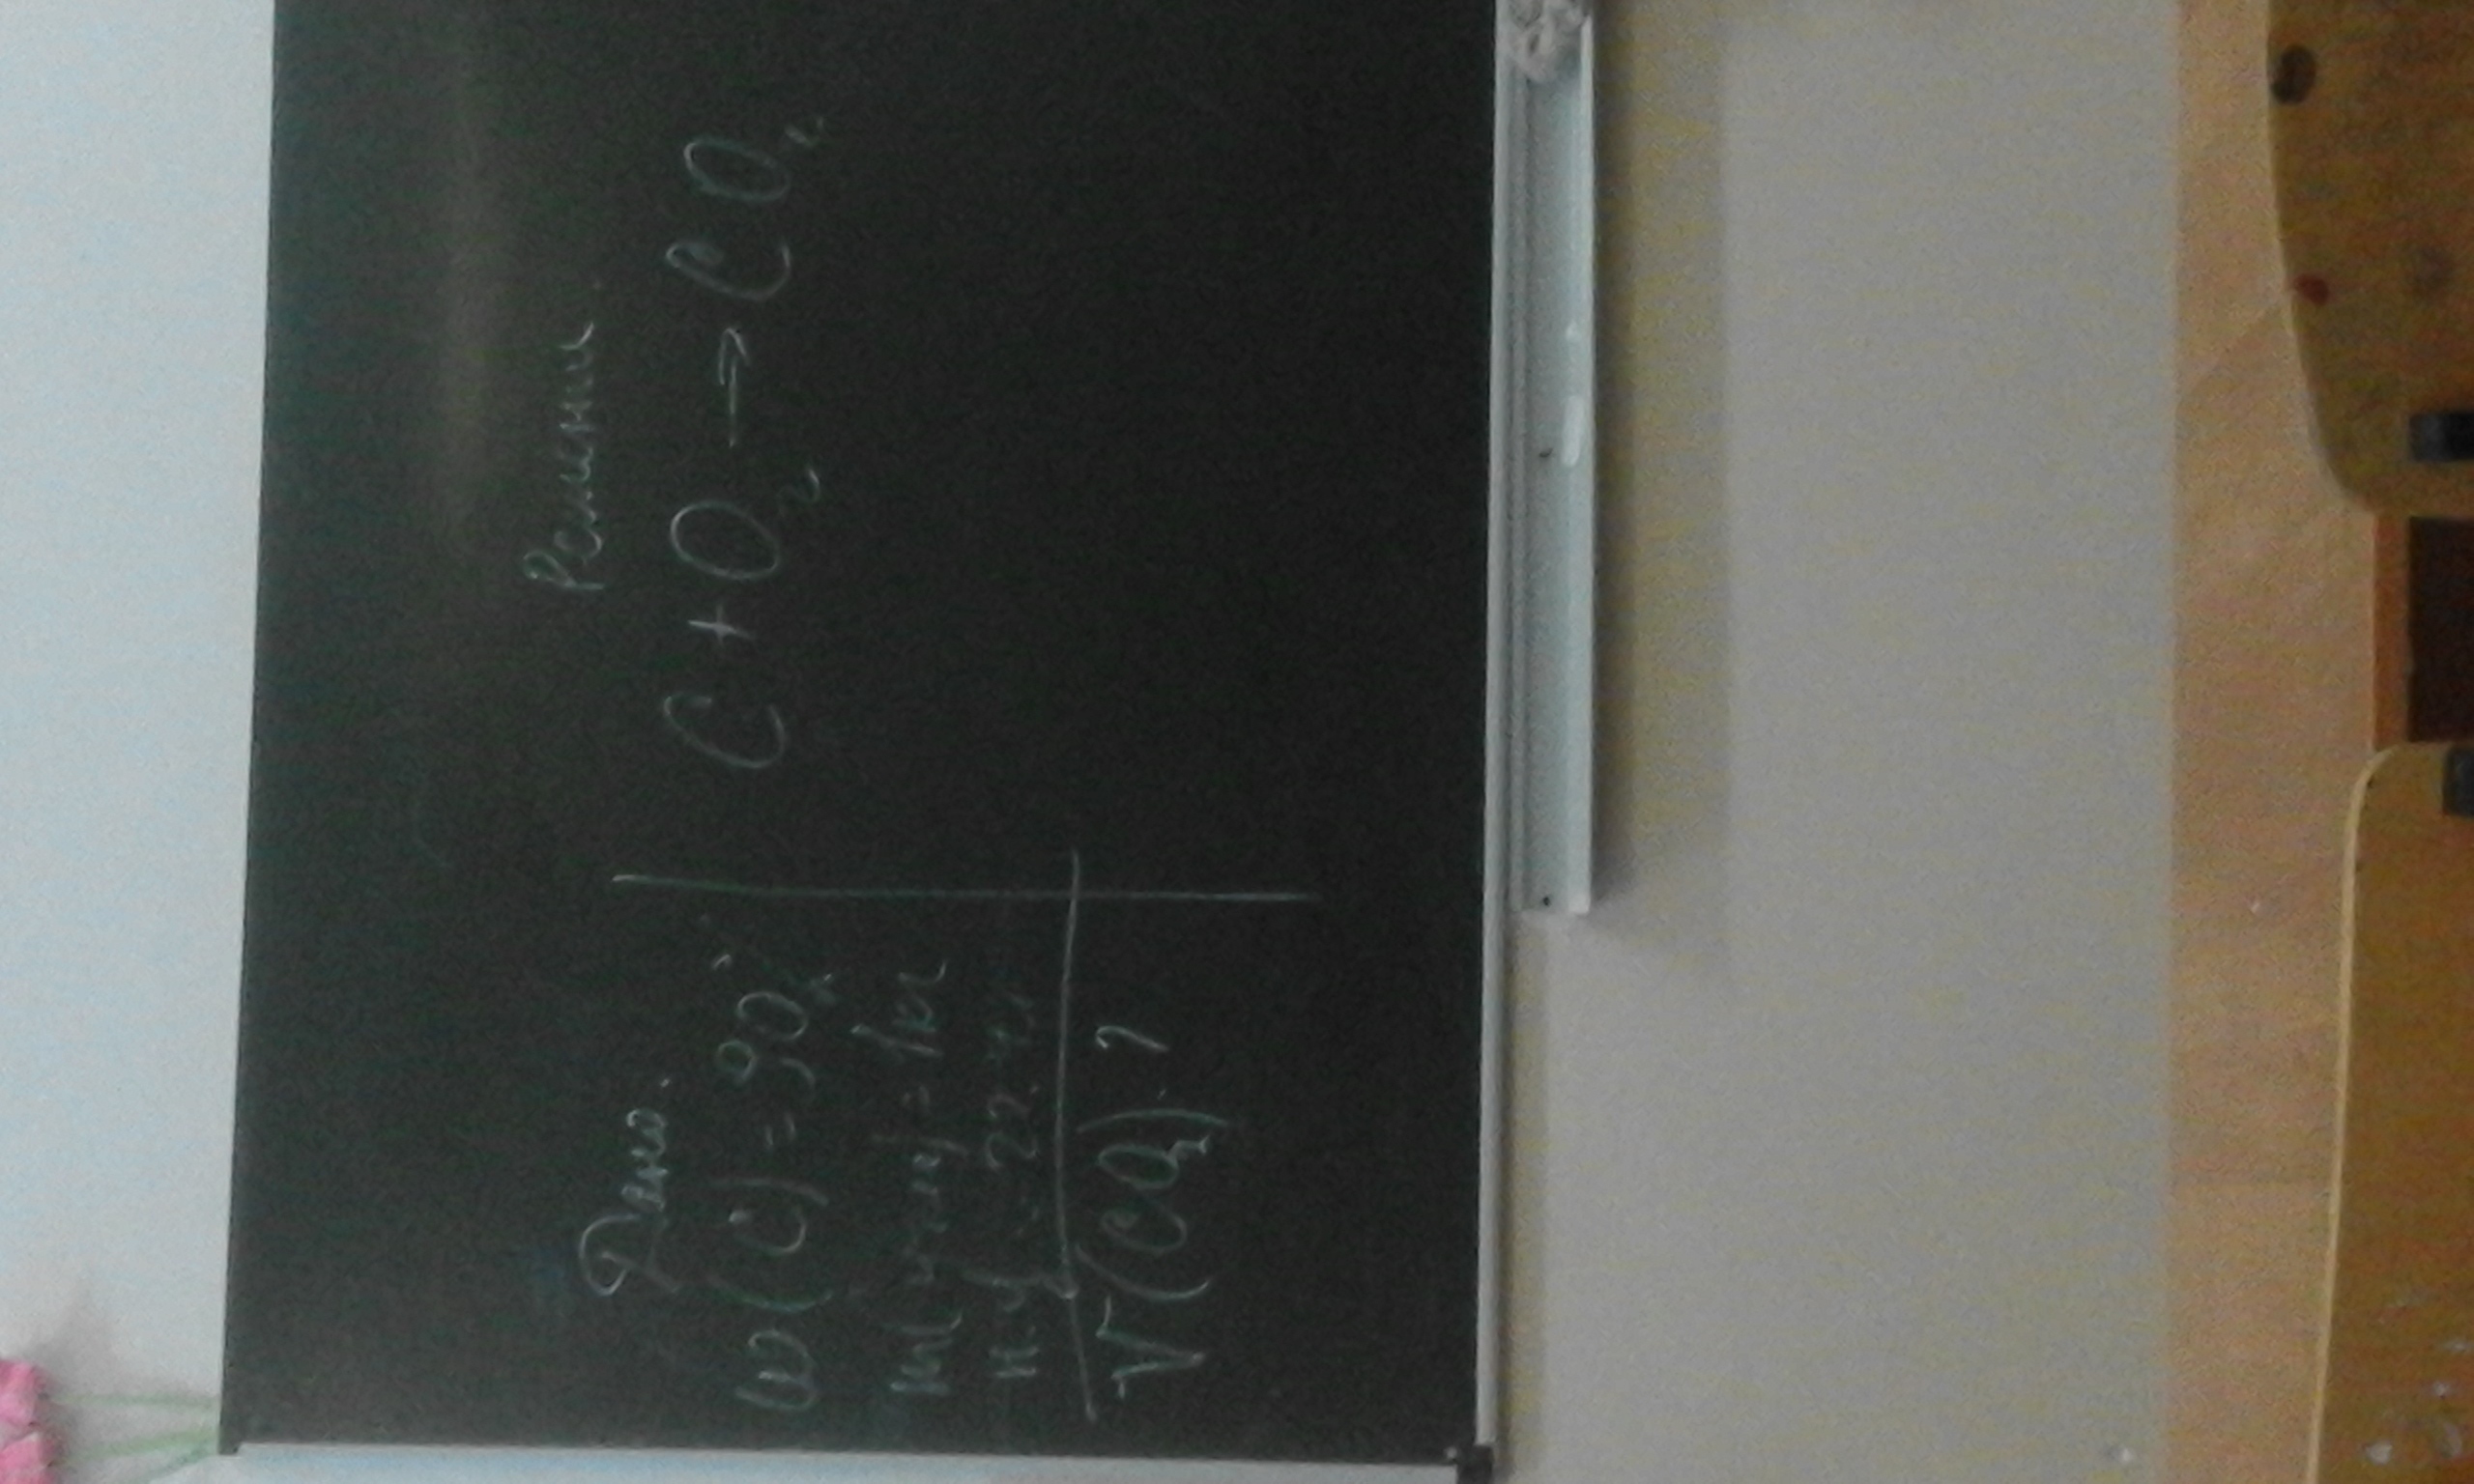 Дано.
W(C) = 90%
m(угля) = 1кг
н.у. 22.4л
V(CO₂).?
Решение.
C + O₂ → CO₂